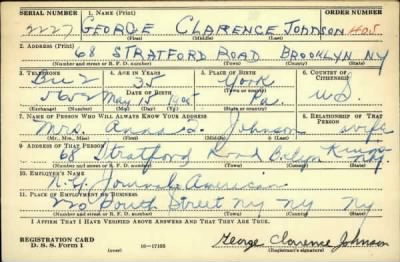 SERIAL NUMBER 1. NAME (Print) ORDER NUMBER
2227 GEORGE CLARENCE JOHNSON 1405
(First) (Middle) (Last)
2. ADDRESS (Print)
68 STRATFORD ROAD BROOKLYN NY
(Number and street or R. F. D. number) (Town) (County) (State)
3. TELEPHONE 4. AGE IN YEARS 5. PLACE OF BIRTH 6. COUNTRY OF CITIZENSHIP
Bu 2 35 York
DATE OF BIRTH (Town or county)
5602 May 15 1905 Pa. U.S.
(Exchange) (Number) (Mo.) (Day) (Yr.) (State or country)
7. NAME OF PERSON WHO WILL ALWAYS KNOW YOUR ADDRESS 8. RELATIONSHIP OF THAT PERSON
Mrs. Anna Johnson wife
(Mr., Mrs., Miss) (First) (Middle) (Last)
9. ADDRESS OF THAT PERSON
68 Stratford Road Bklyn Kings N.Y.
(Number and street or R. F. D. number) (Town) (County) (State)
10. EMPLOYER'S NAME
N.Y. Journal American
11. PLACE OF EMPLOYMENT OR BUSINESS
220 South Street NY NY NY
(Number and street or R. F. D. number) (Town) (County) (State)
I AFFIRM THAT I HAVE VERIFIED ABOVE ANSWERS AND THAT THEY ARE TRUE.
REGISTRATION CARD
D. S. S. Form 1 (over) 16—17105 George Clarence Johnson
(Registrant's signature)